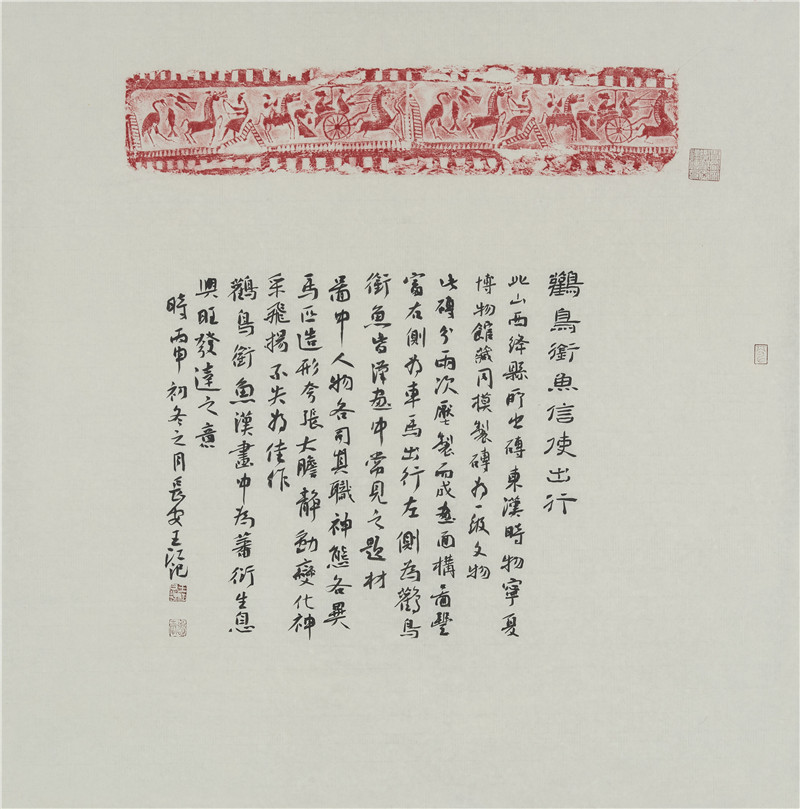 鸛鳥銜魚信使出行
此山西絳縣所出磚東漢時物寧夏
博物館藏同模製磚為一級文物
此磚分兩次壓製而成畫面構圖豐
富右側為車馬出行左側為鸛鳥
銜魚皆漢畫中常見之題材
圖中人物各司其職神態各異
馬匹造形夸張大膽靜動變化神
采飛揚不失為佳作
鸛鳥銜魚漢畫中為蕃衍生息
興旺發達之意
時丙申初冬之月長安王江記